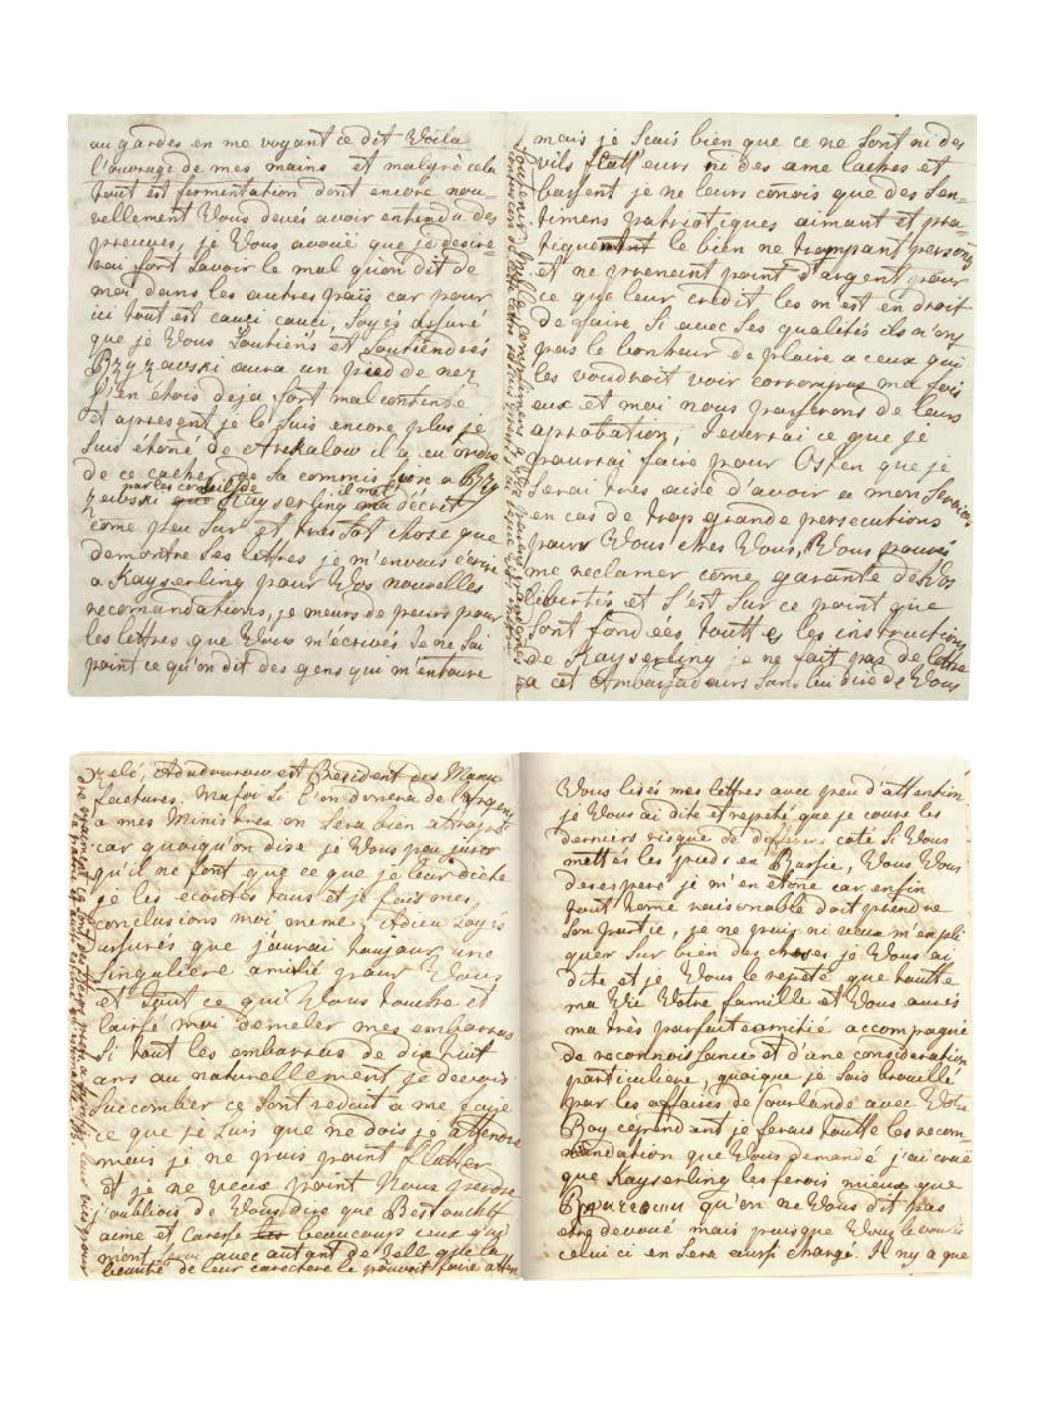 au gardes en me voyant ce dit Voila
l'ouvrage de mes mains et malgré cela
tout est fermentation dont encore nou-
vellement Vous devés avoir entendu des
preuves, je Vous avouë que je desire-
rai fort savoir le mal qu'on dit de
moi dans les autres païs car pour
ici tout est cauci cauci, soyés assuré
que je Vous soutiens et soutiendrés
aura un pied de nez
j'en étois deja fort mal contente
et apresent je le suis encore plus je
suis étoné de il a eu ordre
de ce cacher de sa commission a
par les conseils de
zewski que Kayserling ma décrit
come peu sur et tres sot chose que
demontre ses lettres je m'envais écrire
a Kayserling pour Vos nouvelles
recomandations, je meurs de peurs pour
les lettres que Vous m'écrivés je ne sai
point ce qu'on dit des gens qui m'entoure
mais je scais bien que ce ne sont ni des
vils flatteurs ni des ame laches et
bassent je ne leurs conois que des sen-
timens patriotiques aimant et pra-
tiquent le bien ne trompant personne
et ne prenent point d'argent pour
ce que leur credit les m'est en droit
de faire si avec ses qualités ils n'ont
pas le bonheur de plaire a ceux qui
les voudroit voir corrompus ma foi
eux et moi nous passerons de leurs
aprobation, je verrai ce que je
pourrai faire pour Osten que je
serai tres aise d'avoir a mon service
en cas de trop grande persecutions
pour Vous chés Vous, Vous pouvés
me reclamer come garante de Vos
libertés et s'est sur ce point que
sont fondées toutt es les instructions
de Kayserling je ne fait pas de lettre
a cet Ambassadeurs sans lui dire de Vous
zelé, est President des Manu
factures. Mafoi si l'on donera de l'argent
a mes Ministres on sera bien atrapé
car quoiqu'on dise je Vous peu jurer
qu'il ne font que ce que je leur dicte
je les ecoutes tous et je fais mes
conclusions moi meme, Adieu soyés
assurés que j'aurai toujour une
singuliere amitié pour Vous
et tout ce qui Vous touche et
laissé moi demeler mes embarras
si tout les embarras de dix huit
ans au naturellement je devois
succomber ce sont reduit a me faire
ce que je suis que ne dois je attendre
mais je ne puis point flatter
et je ne veux point Nous perdre
j'oubliois de Vous dire que Bestoucheff
aime et caresse beaucoup ceux qui
m'ont servie avec autant de zell que la
beauté de leur carectere le pouvoit faire atten
Vous lisés mes lettres avec peu d'attention
je Vous ai dite et repeté que je cours les
derniers risque de differens coté si Vous
mettés les pieds en Russie, Vous Vous
desesperé je m'en étone car enfin
tout home raisonable doit prendre
son partie, je ne puis ni veux m'expli
quer sur bien des choses je Vous ai
dite et je Vous le repete que toutte
ma Vie Votre famille et Vous aurés
ma très parfaite amitié accompagné
de reconnoissance et d'une consideration
particuliere, quoique je sois brouillé
par les affaires de Courlande avec Votre
Roy cependant je ferais toutte les recom-
mandation que Vous demandé j'ai crue
que Kayserling les ferois mieux que
qu'on ne Vous dit pas
etre devoué mais puisque Vous le voulés
celui ci en sera aussi chargé. Il ny a que